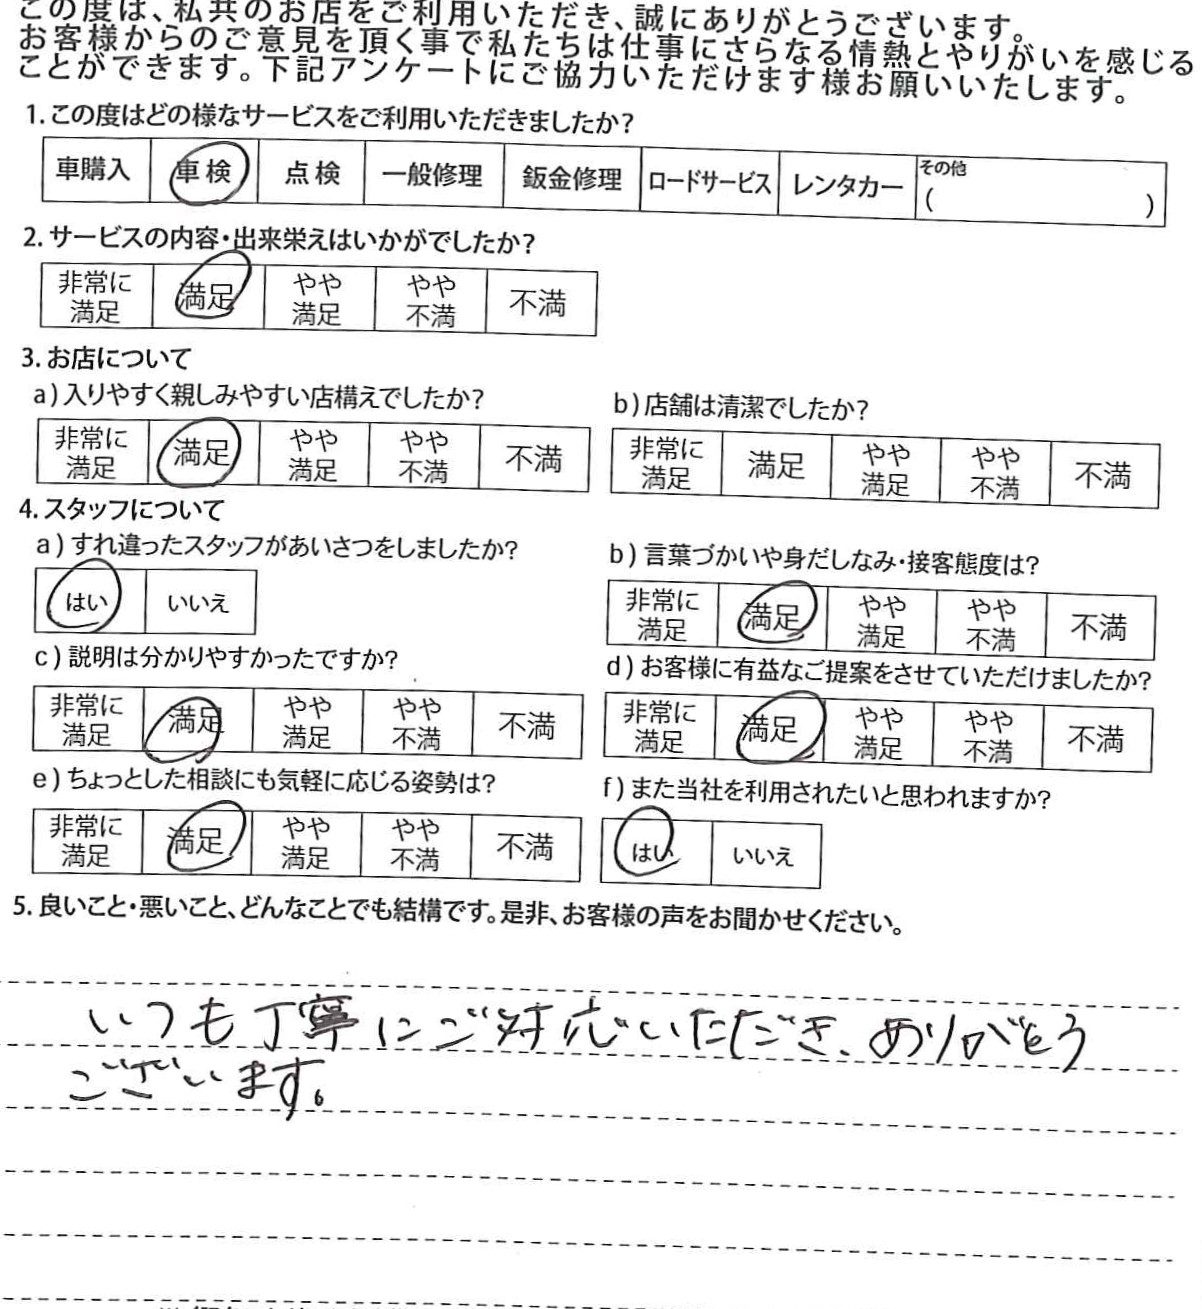 この度は、私共のお店をご利用いただき、誠にありがとうございます。
お客様からのご意見を頂く事で私たちは仕事にさらなる情熱とやりがいを感じる
ことができます。下記アンケートにご協力いただけます様お願いいたします。
1.この度はどの様なサービスをご利用いただきましたか?
車購入 車検 点検 一般修理 鈑金修理 ロードサービス レンタカー その他
( )
2.サービスの内容・出来栄えはいかがでしたか?
非常に満足 満足 やや満足 やや不満 不満
3.お店について
a)入りやすく親しみやすい店構えでしたか?
非常に満足 満足 やや満足 やや不満 不満
b)店舗は清潔でしたか?
非常に満足 満足 やや満足 やや不満 不満
4.スタッフについて
a)すれ違ったスタッフがあいさつをしましたか?
はい いいえ
b)言葉づかいや身だしなみ・接客態度は?
非常に満足 満足 やや満足 やや不満 不満
c)説明は分かりやすかったですか?
非常に満足 満足 やや満足 やや不満 不満
d)お客様に有益なご提案をさせていただけましたか?
非常に満足 満足 やや満足 やや不満 不満
e)ちょっとした相談にも気軽に応じる姿勢は?
非常に満足 満足 やや満足 やや不満 不満
f)また当社を利用されたいと思われますか?
はい いいえ
5.良いこと・悪いこと、どんなことでも結構です。是非、お客様の声をお聞かせください。
いつも丁寧にご対応いただき、ありがとう
ございます。